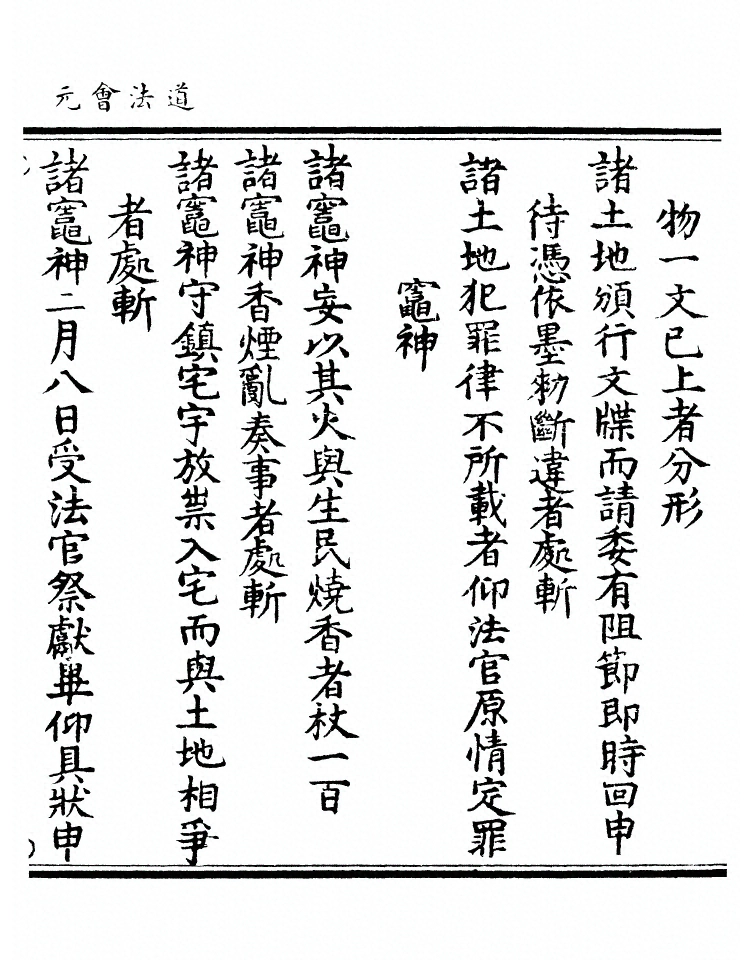 道法會元
物一文已上者分形
諸土地頒行文牒而請委有阻節即時回申
待憑依墨勑斷違者處斬
諸土地犯罪律不所載者仰法官原情定罪
竈神
諸竈神妄以其火與生民燒香者杖一百
諸竈神香煙亂奏事者處斬
諸竈神守鎮宅宇放祟入宅而與土地相爭
者處斬
諸竈神二月八日受法官祭獻畢仰具狀申